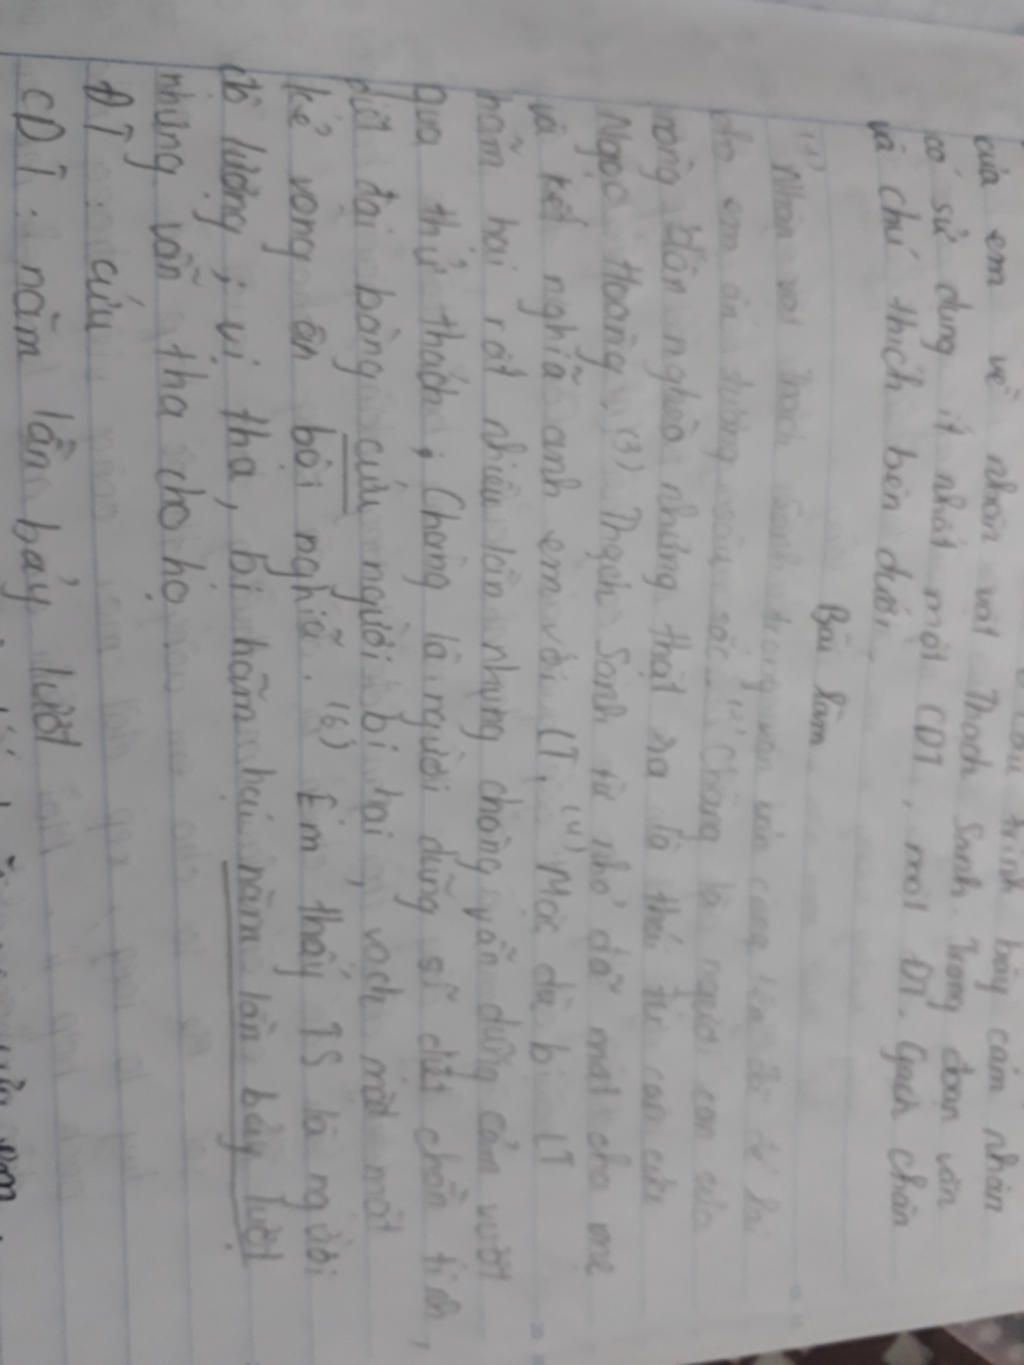 trình bày cảm nhận
của em về nhân vật Thạch Sanh. Trong đoạn văn
có sử dụng ít nhất một CĐT, một ĐT. Gạch chân
và chú thích bên dưới.
Bài làm
(1) Nhân vật Thạch Sanh trong văn bản cùng tên đã để lại
cho em ấn tượng sâu sắc. (2) Chàng là người con của
nông dân nghèo nhưng thật ra là thái tử con của
Ngọc Hoàng. (3) Thạch Sanh từ nhỏ đã mất cha mẹ
và kết nghĩa anh em với LT. (4) Mặc dù bị LT
hãm hại rất nhiều lần nhưng chàng vẫn dũng cảm vượt
qua thử thách, Chàng là người dũng sĩ diệt chằn tinh,
diệt đại bàng cứu người bị hại, vạch mặt một
kẻ vong ân bội nghĩa. (6) Em thấy TS là người
độ lượng, vị tha, bị hãm hại năm lần bảy lượt
nhưng vẫn tha cho họ
ĐT: cứu
CĐT: năm lần bảy lượt